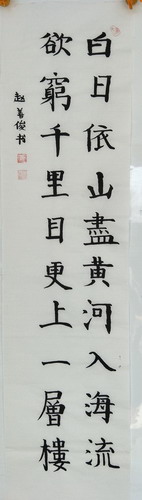 白日依山盡黃河入海流
欲窮千里目更上一層樓
趙善俊书